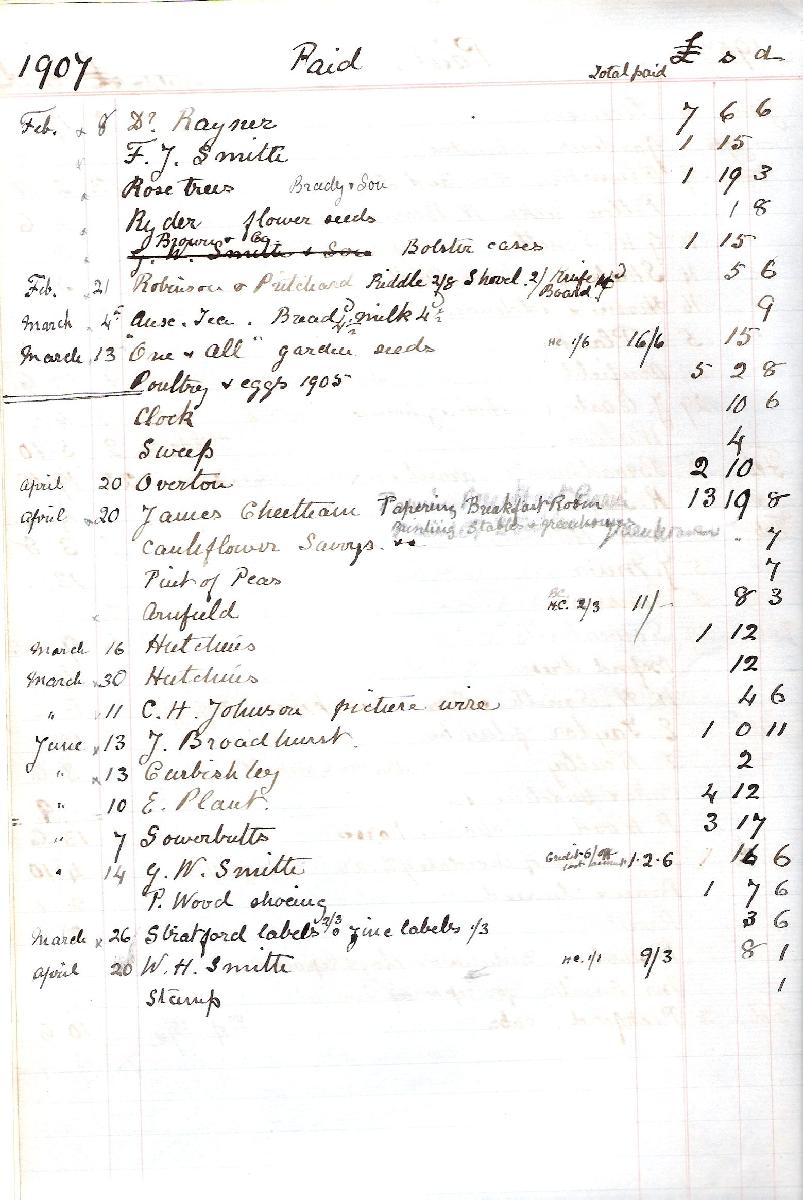 1907 Paid Total paid £ s d
Feb. 8 Dr. Rayner 7 6 6
F. J. Smith 1 15
Rose trees Brady & Son 1 19 3
Ryder flower seeds 1 8
Brown & Co
J. W. Smith & Son Bolster cases 1 15
Feb. 21 Robinson & Pritchard Riddle 2/8 Shovel 2/ Knife Board 5 6
March 4 Tea. Bread milk 9
March 13 "One & all" garden seeds HC 1/6 16/6 15
Poultry & eggs 1905 5 2 8
Clock 10 6
Sweep 4
April 20 Overton 2 10
April 20 James Cheetham Papering Breakfast Room 13 19 8
Stables & greenhouse
Cauliflower Savoys. 7
Pint of Peas 7
Arnfield H.C. 2/3 11/- 8 3
March 16 Hutchins 1 12
March 30 Hutchins 12
" 11 C. H. Johnson picture wire 4 6
June 13 J. Broadhurst. 1 0 11
" 13 Curbishley 2
" 10 E. Plant. 4 12
" 7 Sowerbutts 3 17
" 14 G. W. Smith 1.2.6 16 6
P. Wood shoeing 1 7 6
March 26 Stratford labels 2/3 zinc labels 1/3 3 6
April 20 W. H. Smith HC. 1/1 9/3 8 1
Stamp 1